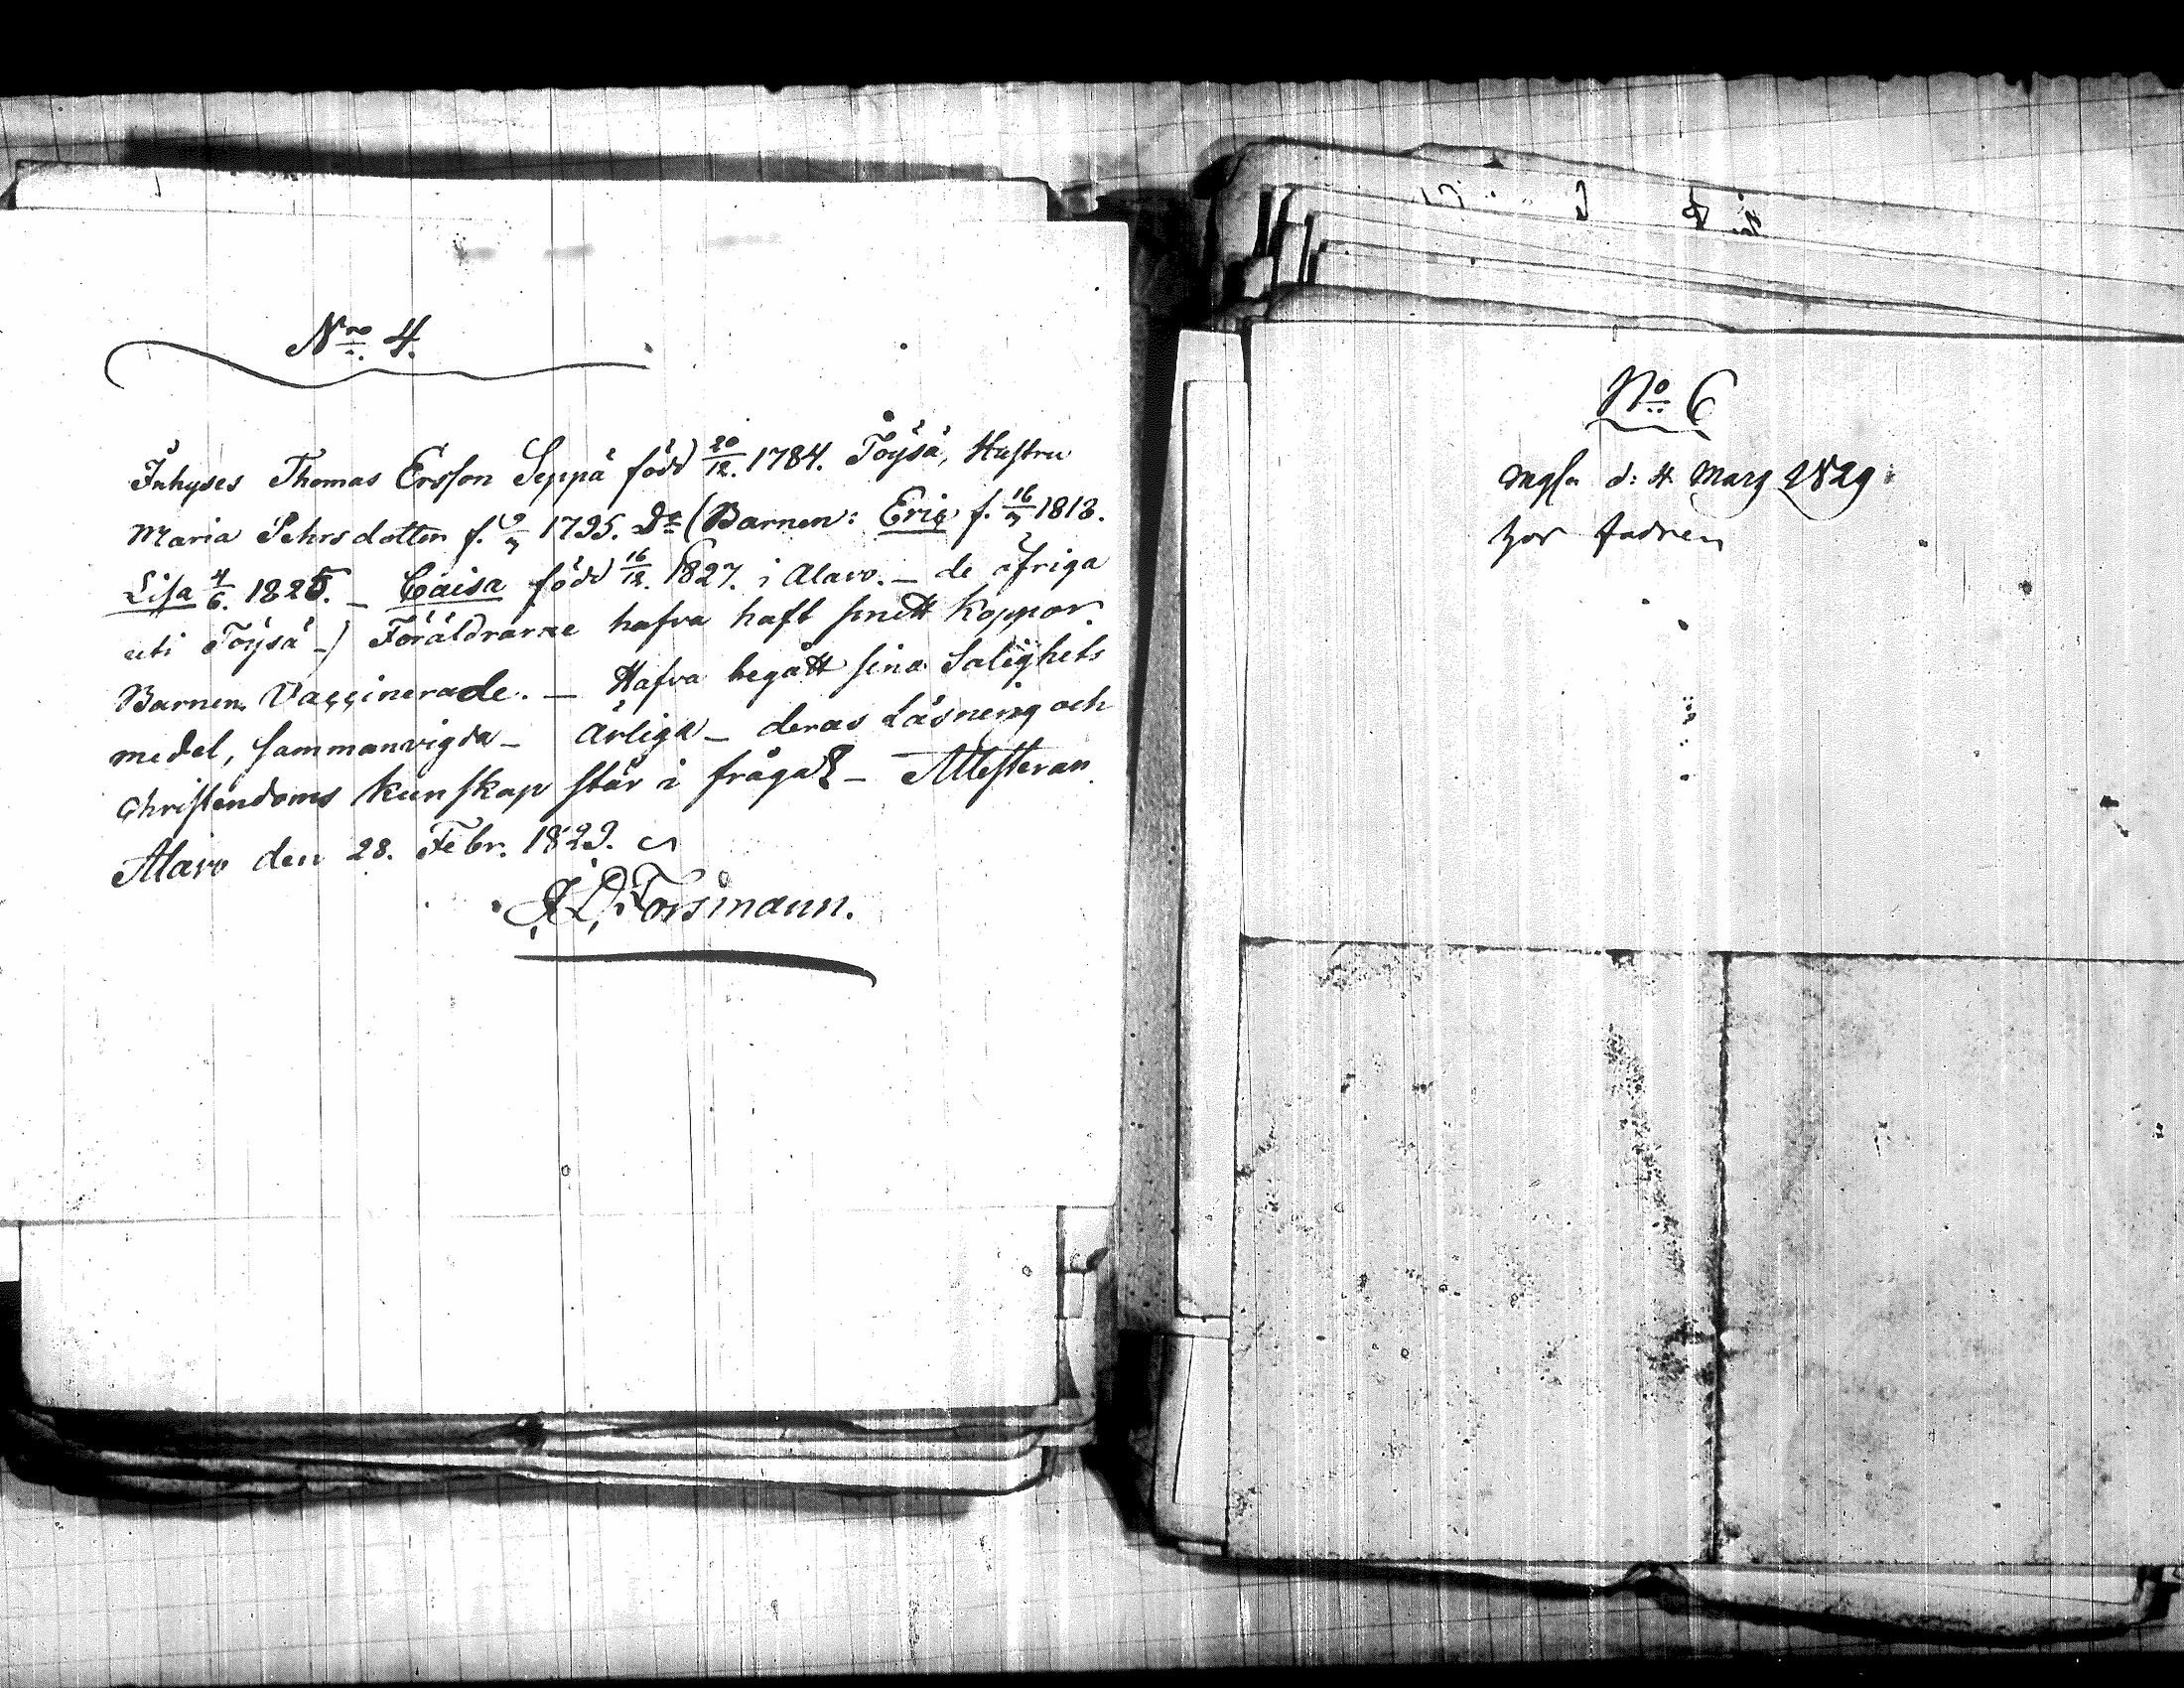 Nro 4.
Inhyses Thomas Ersson Seppä född 20/12. 1784. Töysä, Hustru
Maria Pehrsdotter f. 9/7 1795. Do (Barnen: Eric f. 16/7 1818.
Lisa 4/6. 1825. – Caisa född 16/12. 1827. i Alavo. – de öfriga
uti Töysä –) Föräldrarne hafva haft smett koppor.
Barnen Vaccinerade. – Hafva begått sina Salighets
medel, sammanvigda – ärliga – deras Läsning och
Christendoms kunskap står i fråga – Attesteran
Alavo den 28. Febr. 1829.
Forsmann.
No 6
d: 4 Mars 1829